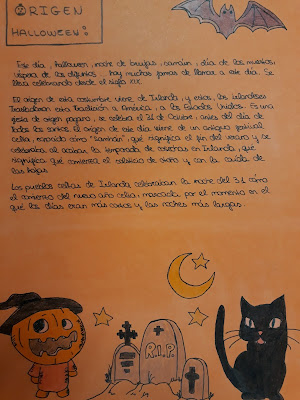 ORIGEN
HALLOWEEN:
Este día, halloween, noche de brujas, samain, día de los muertos,
víspera de los difuntos... hay muchas formas de llamar a este día. Se
lleva celebrando desde el siglo XIX.
El origen de esta costumbre viene de Irlanda, y estos, los irlandeses
trasladaron esta tradición a América, a los Estados Unidos. Es una
fiesta de origen pagano, se celebra el 31 de Octubre, antes del día de
todos los santos. El origen de este día viene de un antiguo festival
celta, conocido cómo "Samhain", que significa el fin del verano y se
celebraba al acabar la temporada de cosechas en Irlanda, que
significaba que comienza el solsticio de otoño y con la caída de
las hojas.
Los pueblos celtas de Irlanda celebraban la noche del 31 cómo
el comienzo del nuevo año celta, marcada por el momento en el
qué los días eran más cortos y las noches más largas.
R.I.P